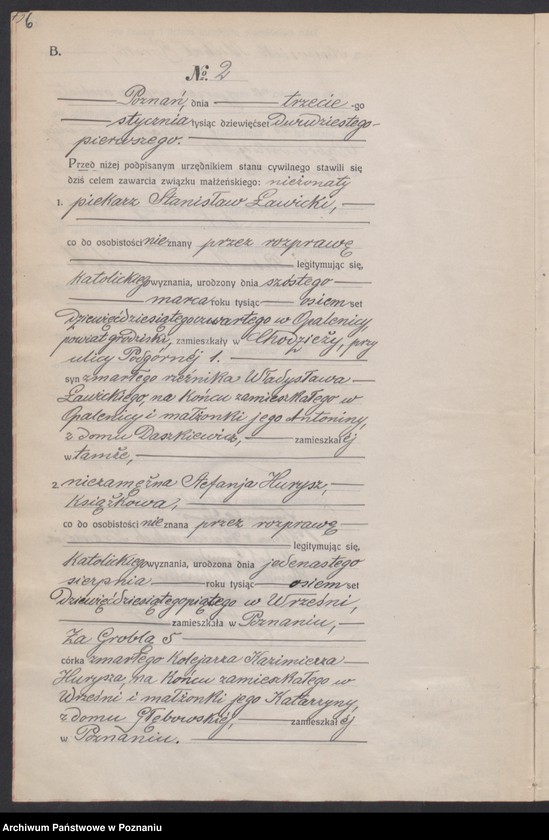 6
B.
No. 2
Poznań, dnia trzecie -go
stycznia tysiąc dziewięćset dwudziestego-
pierwszego.
Przed niżej podpisanym urzędnikiem stanu cywilnego stawili się
dziś celem zawarcia związku małżeńskiego: nieżonaty
1. piekarz Stanisław Ławicki,
co do osobistości nieznany przez rozprawę
legitymując się,
katolickiego wyznania, urodzony dnia szóstego
marca roku tysiąc osiemset
dziewięćdziesiątegoczwartego w Opalenicy,
powiat grodziski, zamieszkały w Chodzieży, przy
ulicy Podgórnéj 1.
syn zmarłego rzeźnika Władysława
Ławickiego, na końcu zamieszkałego w
Opalenicy i małżonki jego Antoniny,
z domu Daszkiewicz, zamieszkałéj
w tamże,
2 niezamężna Stefanja Hurysz,
książkowa,
co do osobistości nieznana przez rozprawę
legitymując się,
katolickiego wyznania, urodzona dnia jedenastego
sierpnia roku tysiąc osiemset
dziewięćdziesiątegopiątego w Wrześni,
zamieszkała w Poznaniu,
Za Groblą 5
córka zmarłego kolejarza Kazimierza
Hurysza, na końcu zamieszkałego w
Wrześni i małżonki jego Katarzyny,
z domu Głębowskiéj, zamieszkałéj
w Poznaniu.
Archiwum Państwowe w Poznaniu